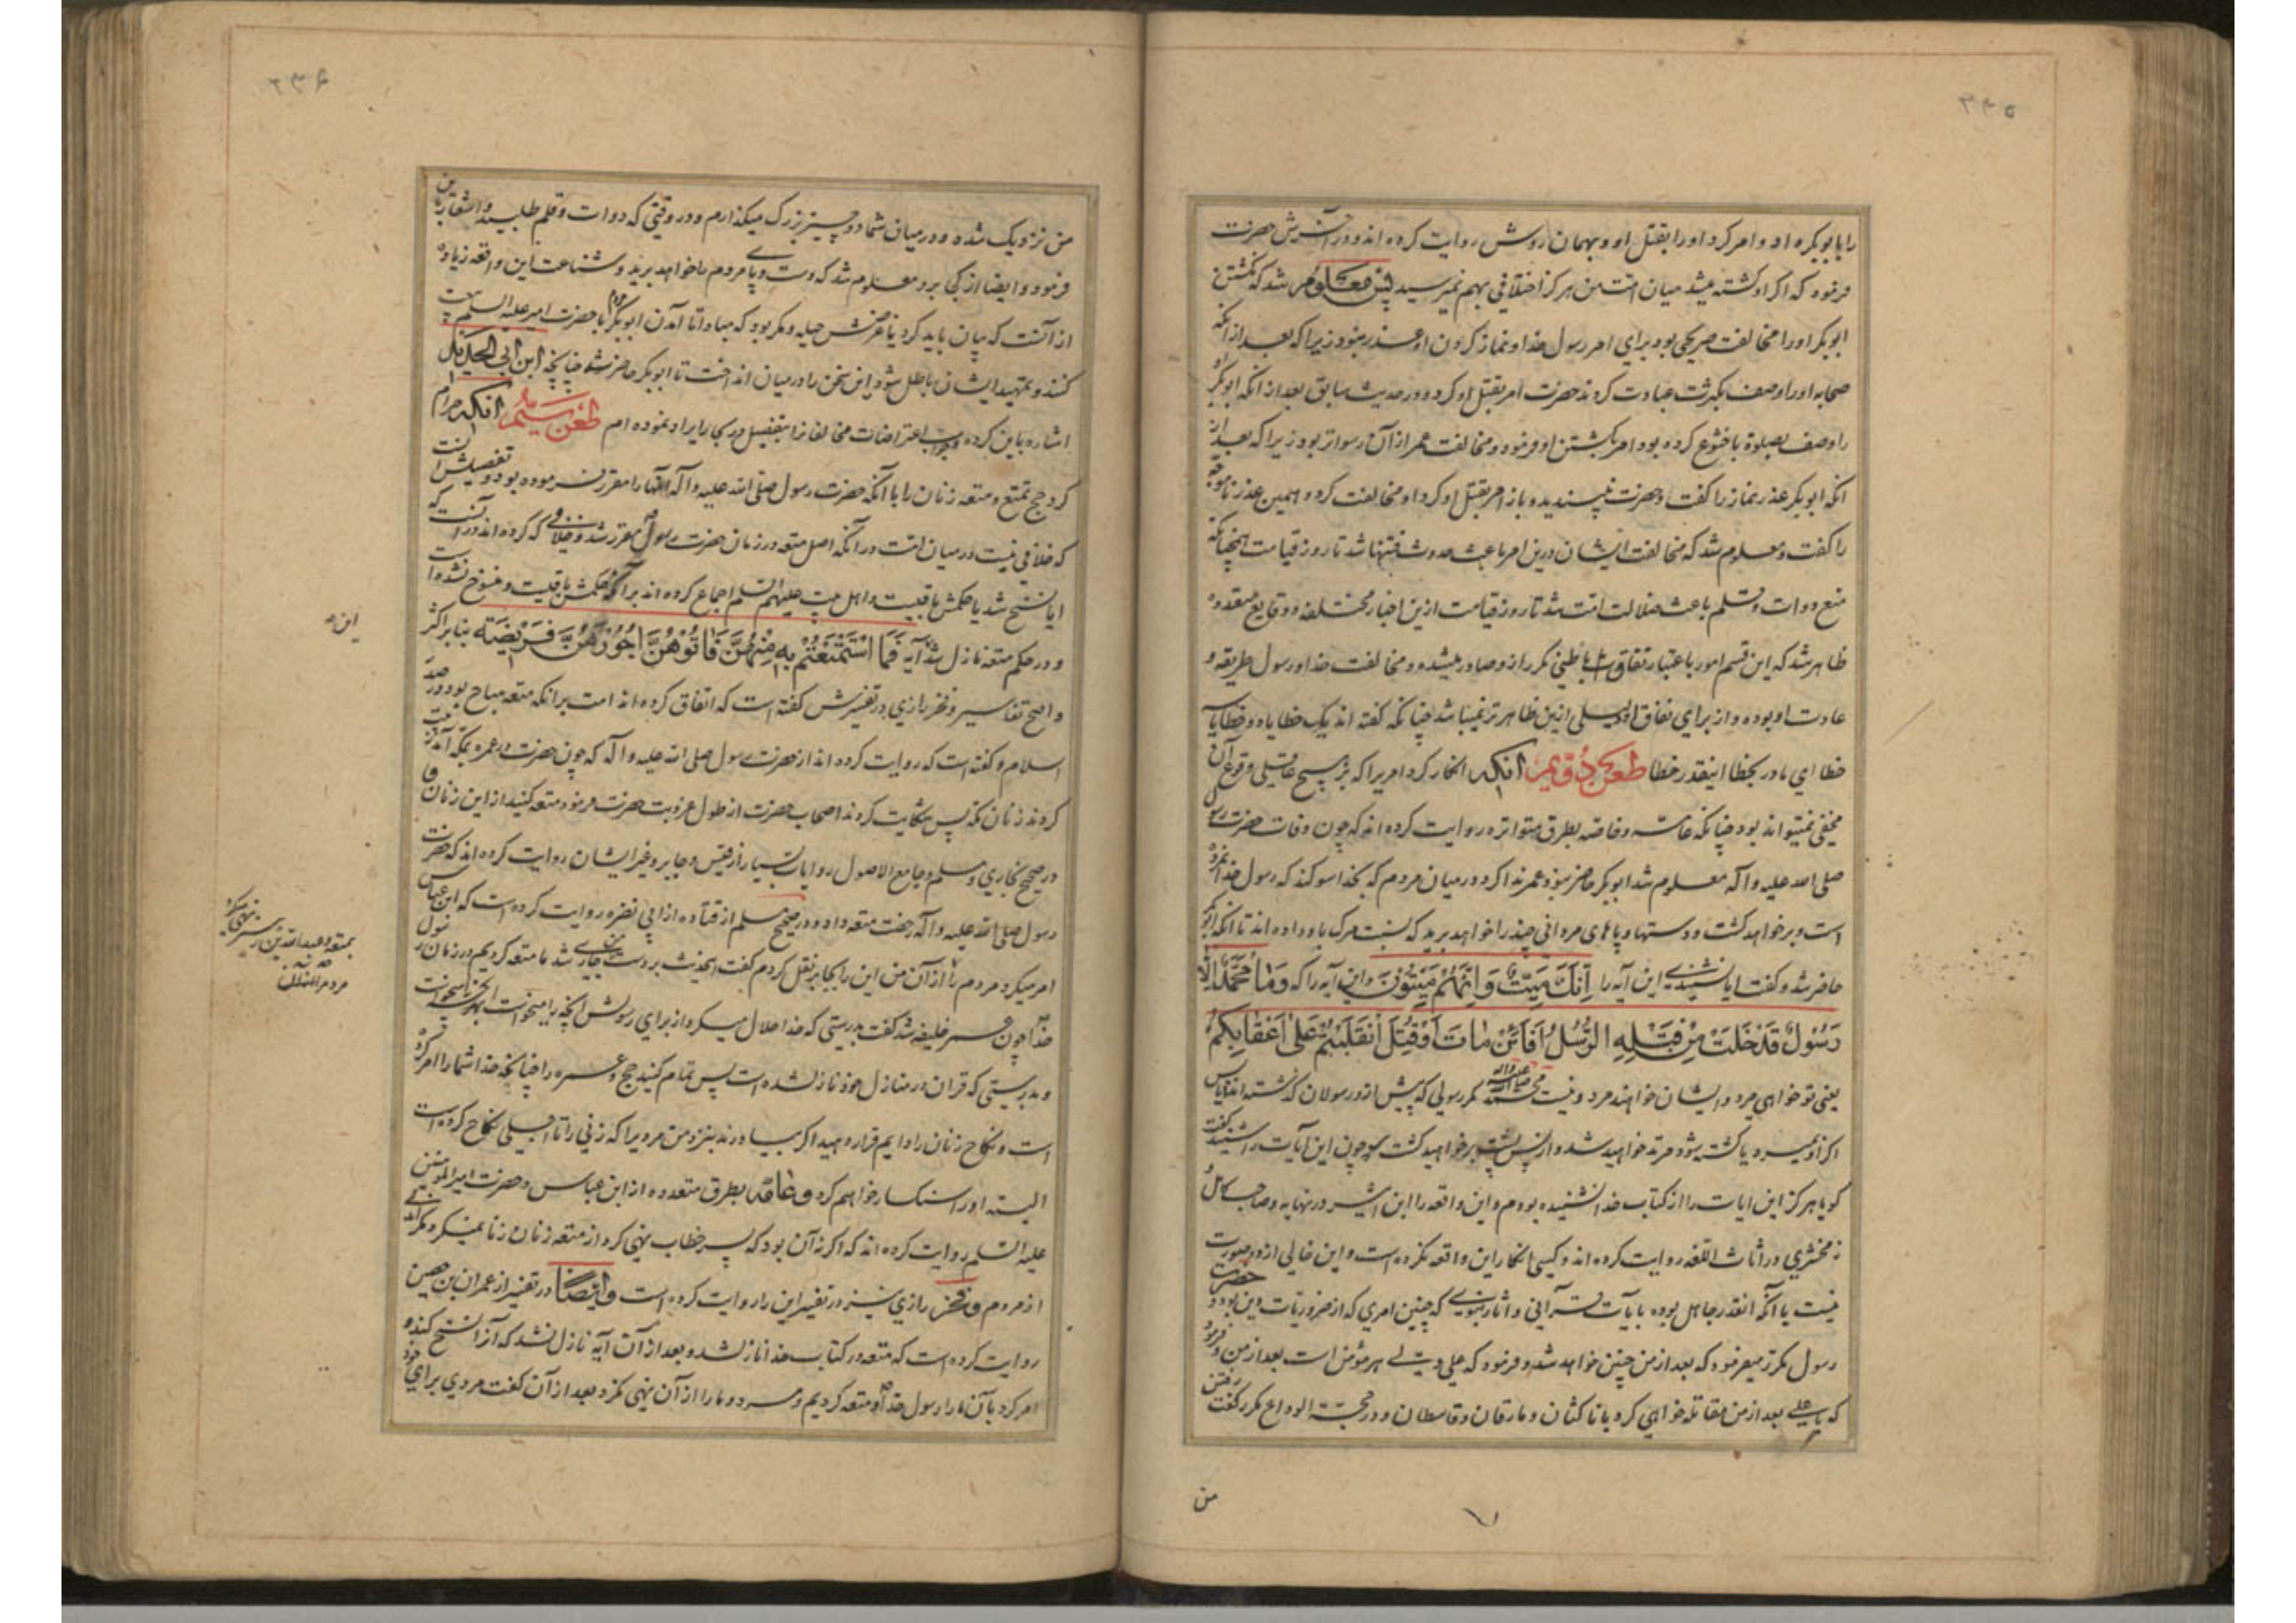 ۳۳۵
را بابوبکر داد و امر کرد او را بقتل او و بهمان روش روایت کرده اند و در آخرش حضرت
فرمود که اگر او کشته میشد میان امت من هرگز اختلافی بهم نمیرسید پس معلوم شد که نکشتن
ابوبکر او را مخالفت صریحی بود برای امر رسول خدا و نماز کردن او عذر نبود زیرا که بعد از آنکه
صحابه او را وصف بکثرت عبادت کردند حضرت امر بقتل او کرد و در حدیث سابق بعد از آنکه ابوبکر او
را وصف بصلوة با خشوع کرده بود امر بکشتن او فرمود و مخالفت عمر از آن رسواتر بود زیرا که بعد از
آنکه ابوبکر عذر نماز را گفت و حضرت نپسندیده و باز امر بقتل او کرد او مخالفت کرد و همین عذر ناموجه
را گفت و معلوم شد که مخالفت ایشان درین امر باعث حدوث فتنها شد تا روز قیامت همچنانکه
منع دوات و قلم باعث ضلالت امت شد تا روز قیامت ازین اخبار مختلفه و وقایع متعدده
ظاهر شد که این قسم امور باعتبار نفاق باطنی مکرر از و صادر میشده و مخالفت خدا و رسول طریقه و
عادت او بوده و از برای نفاق او دلیلی ازین ظاهرتر نمیباشد چنانکه گفته اند یک خطا یا دو خطا یا
خطا ای مادر بخطا اینقدر خطا طعن دویم آنکه انکار کرد امریرا که بر هیچ عاقلی وقوع آن
مخفی نمیتواند بود چنانکه عامه و خاصه بطرق متواتره روایت کرده اند که چون وفات حضرت رسول
صلی الله علیه و آله معلوم شد ابوبکر حاضر نبود عمر ندا کرد در میان مردم که بخدا سوگند که رسول خدا نمرده
است و بر خواهد گشت و دستها و پاهای مردانی چند را خواهد برید که نسبت مرگ باو داده اند تا آنکه ابوبکر
حاضر شد و گفت ایا نشنیدی این آیه را اِنَّكَ مَيِّتٌ وَاِنَّهُمْ مَيِّتُونَ و این آیه را که وَمَا مُحَمَّدٌ اِلَّا
رَسُولٌ قَدْ خَلَتْ مِنْ قَبْلِهِ الرُّسُلُ اَفَاِنْ مَاتَ اَوْ قُتِلَ انْقَلَبْتُمْ عَلىٰ اَعْقَابِكُمْ
یعنی تو خواهی مرد و ایشان خواهند مرد و نیست محمد صلی الله علیه و آله مگر رسولی که پیش از و رسولان گذشته اند آیا پس
اگر او بمیرد یا کشته شود مرتد خواهید شد و از پس پشت بر خواهید گشت چون این آیات را شنید گفت
گویا هرگز این ایات را از کتاب خدا نشنیده بودم و این واقعه را ابن اثیر در نهایه و صاحب کامل و
زمخشری در اساس اللغه روایت کرده اند و کسی انکار این واقعه نکرده است و این خالی از دو صورت
نیست یا آنکه آنقدر جاهل بوده بآیات قرآنی و اثار نبوی که چنین امری که از ضروریات دین بود و حضرت
رسول مکرر میفرمود که بعد از من چنین خواهد شد و فرمود که علی ولی هر مؤمن است بعد از من و فرمود
که یا علی بعد از من مقاتله خواهی کرد با ناکثان و مارقان و قاسطان و در حجة الوداع مکرر گفت رفتن
من
۳۳۶
من نزدیک شده و در میان شما دو چیز بزرگ میگذارم و در وقتی که دوات و قلم طلبید و اشعار باین
فرمود و ایضا از کجا برو معلوم شد که دست و پای مردم را خواهد برید و شناعت این واقعه زیاده
از آنست که بیان باید کرد یا غرضش حیله و مکر بود که مبادا تا آمدن ابوبکر مردم با حضرت امیر علیه السلم بیعت
کنند و تمهید ایشان باطل شود این سخن را در میان انداخت تا ابوبکر حاضر شد چنانچه ابن ابی الحدید
اشاره باین کرده و جواب اعتراضات مخالفانرا بتفصیل در بحار ایراد نموده ام طعن سیم آنکه حرام
کرد حج تمتع و متعه زنان را با آنکه حضرت رسول صلی الله علیه و آله آنها را مقرر فرموده بود و تفصیلش آنست
که خلافی نیست در میان امت در آنکه اصل متعه در زمان حضرت رسول مقرر شد و خلافی که کرده اند در آنست که
ایا نسخ شد یا حکمش باقیست و اهل بیت علیهم السلم اجماع کرده اند بر آنکه حکمش باقیست و منسوخ نشده است
و در حکم متعه نازل شد آیه فَمَا اسْتَمْتَعْتُمْ بِهِ مِنْهُنَّ فَآتُوهُنَّ اُجُورَهُنَّ فَرِيضَةً بنا بر اکثر
و اصح تفاسیر و فخر رازی در تفسیرش گفته است که اتفاق کرده اند امت برانکه متعه مباح بود در صدر
اسلام و گفته است که روایت کرده اند از حضرت رسول صلی الله علیه و آله که چون حضرت در عمره بمکه آمد زینت
کردند زنان مکه پس شکایت کردند اصحاب حضرت از طول عزوبت حضرت فرمود متعه کنید از این زنان و
در صحیح بخاری و مسلم و جامع الاصول روایات بسیار از قیس و جابر و غیر ایشان روایت کرده اند که حضرت
رسول صلی الله علیه و آله رخصت متعه داد و در صحیح مسلم از قتاده از ابی نضره روایت کرده است که ابن عباس
امر میکرد مردم را از آن من این را بجابر نقل کردم گفت این حدیث بر دست من جاری شد ما متعه کردیم در زمان رسول
خدا چون عمر خلیفه شد گفت بدرستی که خدا حلال میکرد از برای رسولش آنچه را میخواست بهر نحو که میخواست
و بدرستی که قران در منازل خود نازل شده است پس تمام کنید حج و عمره را چنانچه خدا شما را امر کرده
است و نکاح زنان را دایم قرار دهید اگر بیاورند بنزد من مردیرا که زنی را تا اجلی نکاح کرده است
البته او را سنگسار خواهم کرد و عامه بطرق متعدده از ابن عباس و حضرت امیرالمومنین
علیه السلم روایت کرده اند که اگر نه آن بود که پسر خطاب نهی کرد از متعه زنان زنا نمیکرد مگر اندکی
از مردم و فخر رازی نیز در تفسیر این را روایت کرده است وایضاً در تفسیر از عمران بن حصین
روایت کرده است که متعه در کتاب خدا نازل شد و بعد از آن آیه نازل نشد که آنرا نسخ کند و
امر کرد بآن ما را رسول خدا و متعه کردیم و مرد و ما را از آن نهی نکرد بعد از آن گفت مردی برای خود